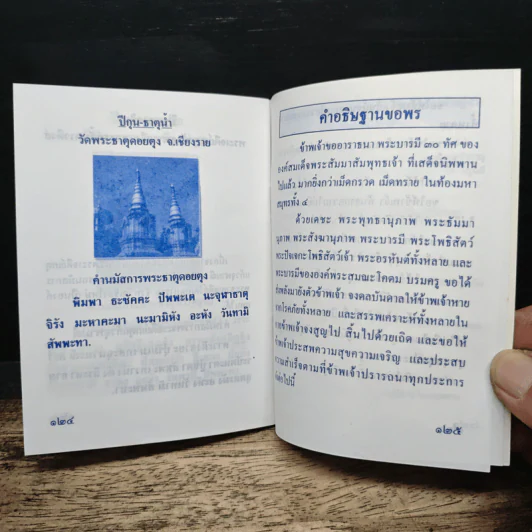 ปีกุน-ธาตุน้ำ
วัดพระธาตุดอยตุง จ.เชียงราย
คำนมัสการพระธาตุดอยตุง
พิมพา ธะชัคคะ ปัพพะเต นะจุฬาธาตุ
จิรัง มะหาคะมา นะมามิหัง อะหัง วันทามิ
สัพพะทา.
๑๒๔
คำอธิษฐานขอพร
ข้าพเจ้าขออาราธนา พระบารมี ๓๐ ทัศ ของ
องค์สมเด็จพระสัมมาสัมพุทธเจ้า ที่เสด็จนิพพาน
ไปแล้ว มากยิ่งกว่าเม็ดกรวด เม็ดทราย ในท้องมหา
สมุทรทั้ง ๔
ด้วยเดชะ พระพุทธานุภาพ พระธัมมา
นุภาพ พระสังฆานุภาพ พระบารมี พระโพธิสัตว์
พระปัจเจกะโพธิสัตว์เจ้า พระอรหันต์ทั้งหลาย และ
พระบารมีขององค์พระสมณะโคดม บรมครู ขอได้
ส่งพลังมายังตัวข้าพเจ้า จงดลบันดาลให้ข้าพเจ้าหาย
จากโรคภัยทั้งหลาย และสรรพเคราะห์ทั้งหลายใน
กายข้าพเจ้าจงสูญไป สิ้นไปด้วยเถิด และขอให้
ข้าพเจ้าประสพความสุขความเจริญ และประสบ
ความสำเร็จตามที่ข้าพเจ้าปรารถนาทุกประการ
ต่อไปนี้
๑๒๕